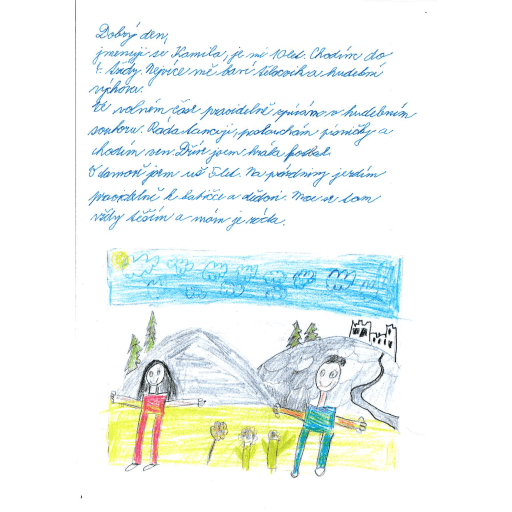 Dobrý den,
jmenuji se Kamila, je mi 10 let. Chodím do
4. třídy. Nejvíce mě baví tělocvik a hudební
výchova.
Ve volném čase pravidelně zpívám v hudebním
souboru. Ráda tancuji, poslouchám písničky a
chodím ven. Dřív jsem hrála fotbal.
V jsem už 5 let. Na prázdniny jezdím
pravidelně k babičce a dědovi. Moc se tam
vždy těším a mám je ráda.